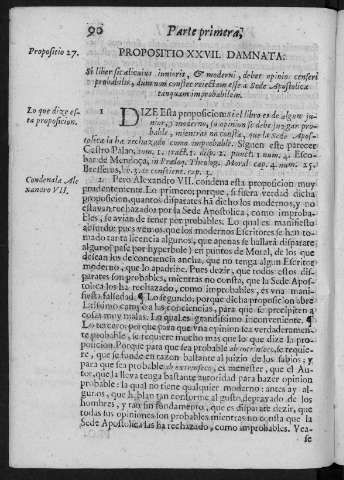 90 Parte primera,
Proposicio 27.
PROPOSITIO XXVII. DAMNATA:
Si liber sit alicuius iunioris, & moderni, debet opinio censeri
probabilis, dum non constet reiectam esse a Sede Apostolica
tanquam improbabilem.
Lo que dize es-
ta proposicion.
1 DIZE Esta proposicion: si el libro es de algun ju-
nior, y moderno, la opinion se debe juzgar pro-
bable, mientras no consta, que la Sede Apos-
tolica la ha rechazado como improbable. Siguen este parecer
Castro Palao, tom. 1. tract. 1. disp. 2. punct. 1 num. 4. Esco-
bar de Mendoça, in Praloq. Theolog. Moral. cap. 4. num. 25.
Bresserus, lib. 3. de conscient. cap. 1.
Condenala Ale
xandro VII.
2. Pero Alexandro VII. condena esta proposicion muy
prudentemente. Lo primero; porque, si fuera verdad dicha
proposicion, quantos disparates hà dicho los modernos, no
rechazados por la Sede Apostolica, como improba-
bles, se avian de tener por probables. Lo qual es manifiesto
absurdo: pues vemos, que los modernos Escritores se hàn to-
mado tanta licencia algunos, que apenas se hallarà disparate
alguno (pase por hyperbole) en puntos de Moral, de los que
desean los de conciencia ancha, que no tenga algun Escritor
moderno, que lo apadrine. Pues dezir, que todos estos dis-
parates son probables, mientras no consta, que la Sede Apo-
stolica los ha rechazado, como improbables, es vna mani-
fiesta falsedad. ¶ Lo segundo, porque dicha proposicion abre
latissimo campo a las conciencias, para que se precipiten a
cosas muy malas. Lo qual es grandissimo inconveniente. ¶
Lo tercero; porque para que vna opinion sea verdaderamen-
te probable, se requiere mucho mas que lo que dize la pro-
posicion. Porque para que sea probable ab intrinseco, se requie-
re, que se funde en razon bastante al juizio de los sabios; y
para que sea probable ab extrinseco, es menester, que el Au-
tor, que la lleva tenga bastante autoridad para hazer opinion
probable: la qual no tiene qualquier moderno: antes ay al-
gunos, que hablan tan conforme al gusto depravado de los
hombres, y tan sin fundamento, que es disparate dezir, que
todas sus opiniones son probables mientras no consta que la
Sede Apostolica las ha rechazado, como improbables. Vea-
se